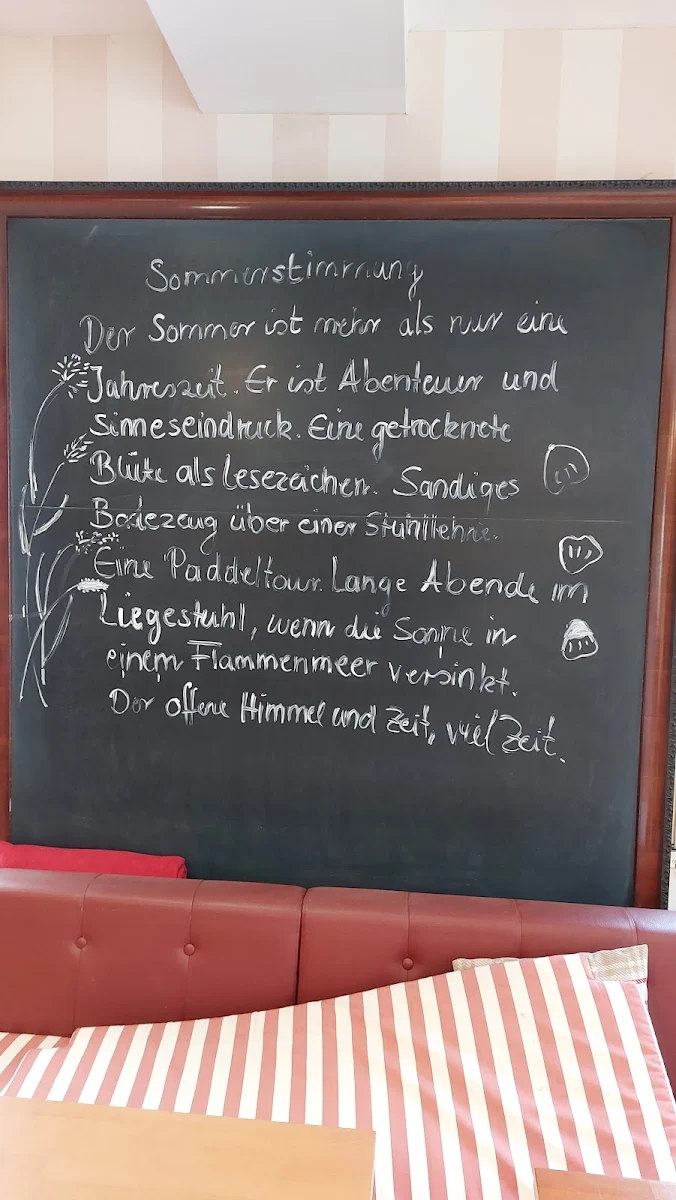 Sommerstimmung
Der Sommer ist mehr als nur eine
Jahreszeit. Er ist Abenteuer und
Sinneseindruck. Eine getrocknete
Blüte als Lesezeichen. Sandiges
Badezeug über einer Stuhllehne.
Eine Paddeltour. Lange Abende im
Liegestuhl, wenn die Sonne in
einem Flammenmeer versinkt.
Der offene Himmel und Zeit, viel Zeit.